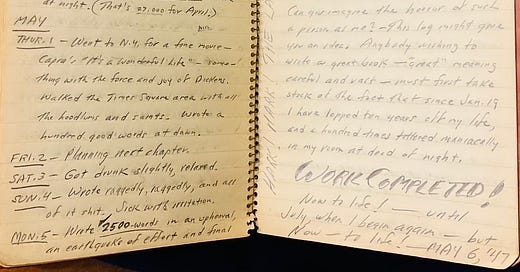 at night. (That's 27,000 for April.)
MAY
THUR. 1 — Went to N.Y. for a fine movie —
Capra's "It's a Wonderful Life" — some-
thing with the force and joy of Dickens.
Walked the Times Square area with all
the hoodlums and saints. Wrote a
hundred good words at dawn.
FRI. 2 — Planning next chapter.
SAT. 3 — Got drunk slightly, relaxed.
SUN. 4 — Wrote raggedly, raggedly, and all
of it shit. Sick with irritation.
MON. 5 — Wrote 2500-words in an upheaval,
an earthquake of effort and final
Can you imagine the horror of such
a person as me? — This log might give
you an idea. Anybody wishing to
write a great book — "great" meaning
careful and vast — must first take
stock of the fact that since Jan. 19
I have lopped ten years off my life,
and a hundred times tittered maniacally
in my room at dead of night.
WORK COMPLETED!
Now to life! — until
July, when I begin again — but
Now — to life! — MAY 6, '47
HARK! HARK THE